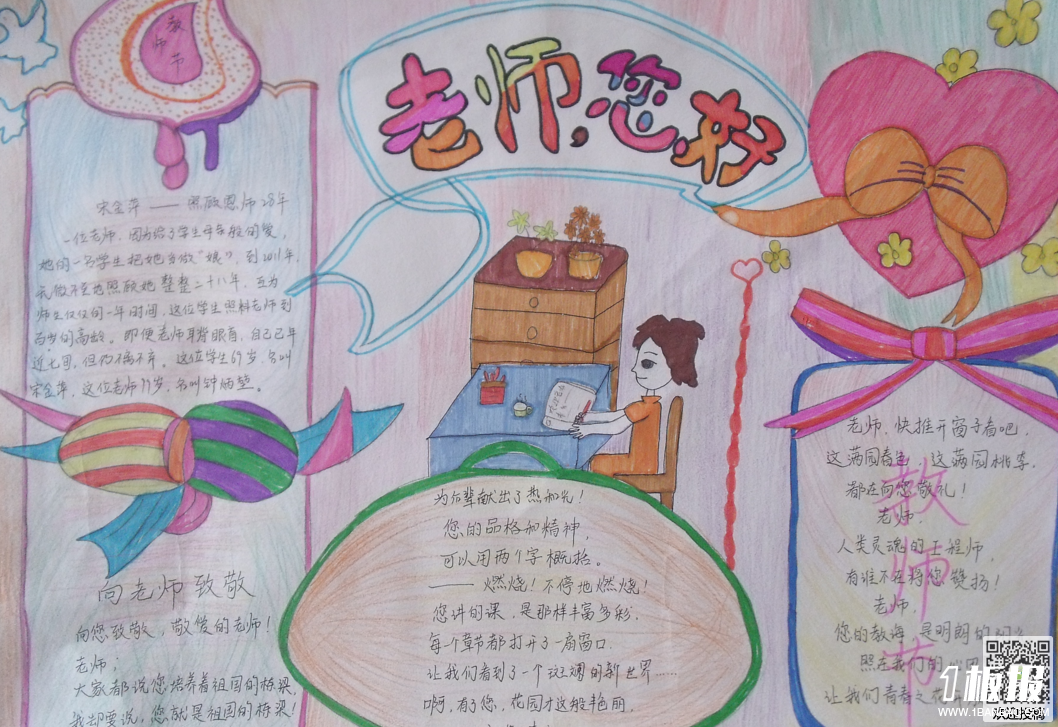 教
师
节
老师,您好
宋金萍——照顾恩师28年
一位老师,因为给了学生母亲般的爱,
她的一名学生把她当做“娘”。到2011年,
无微不至地照顾她整整二十八年,互为
师生仅仅的一年时间,这位学生照料老师到
百岁的高龄。即便老师耳背眼盲,自己已年
近七旬,但仍不离不弃。这位学生69岁,名叫
宋金萍,这位老师99岁,名叫钟
向老师致敬
向您致敬,敬爱的老师!
老师;
大家都说您培养着祖国的栋梁,
我却要说,您就是祖国的栋梁!
为后辈献出了热和光!
您的品格和精神,
可以用两个字概括。
——燃烧!不停地燃烧!
您讲的课,是那样丰富多彩,
每个章节都打开了一扇窗口,
让我们看到了一个斑斓的新世界……
啊,有了您,花园才这般艳丽,
老师,快推开窗子看吧,
这满园春色,这满园桃李,
都在向您敬礼!
老师,
人类灵魂的工程师,
有谁不在将您赞扬!
老师,
您的教诲,是明朗的阳光
照在我们的
让我们青春之花
教
师
节
1板报
WWW.1BANBAO.COM
欢迎支持